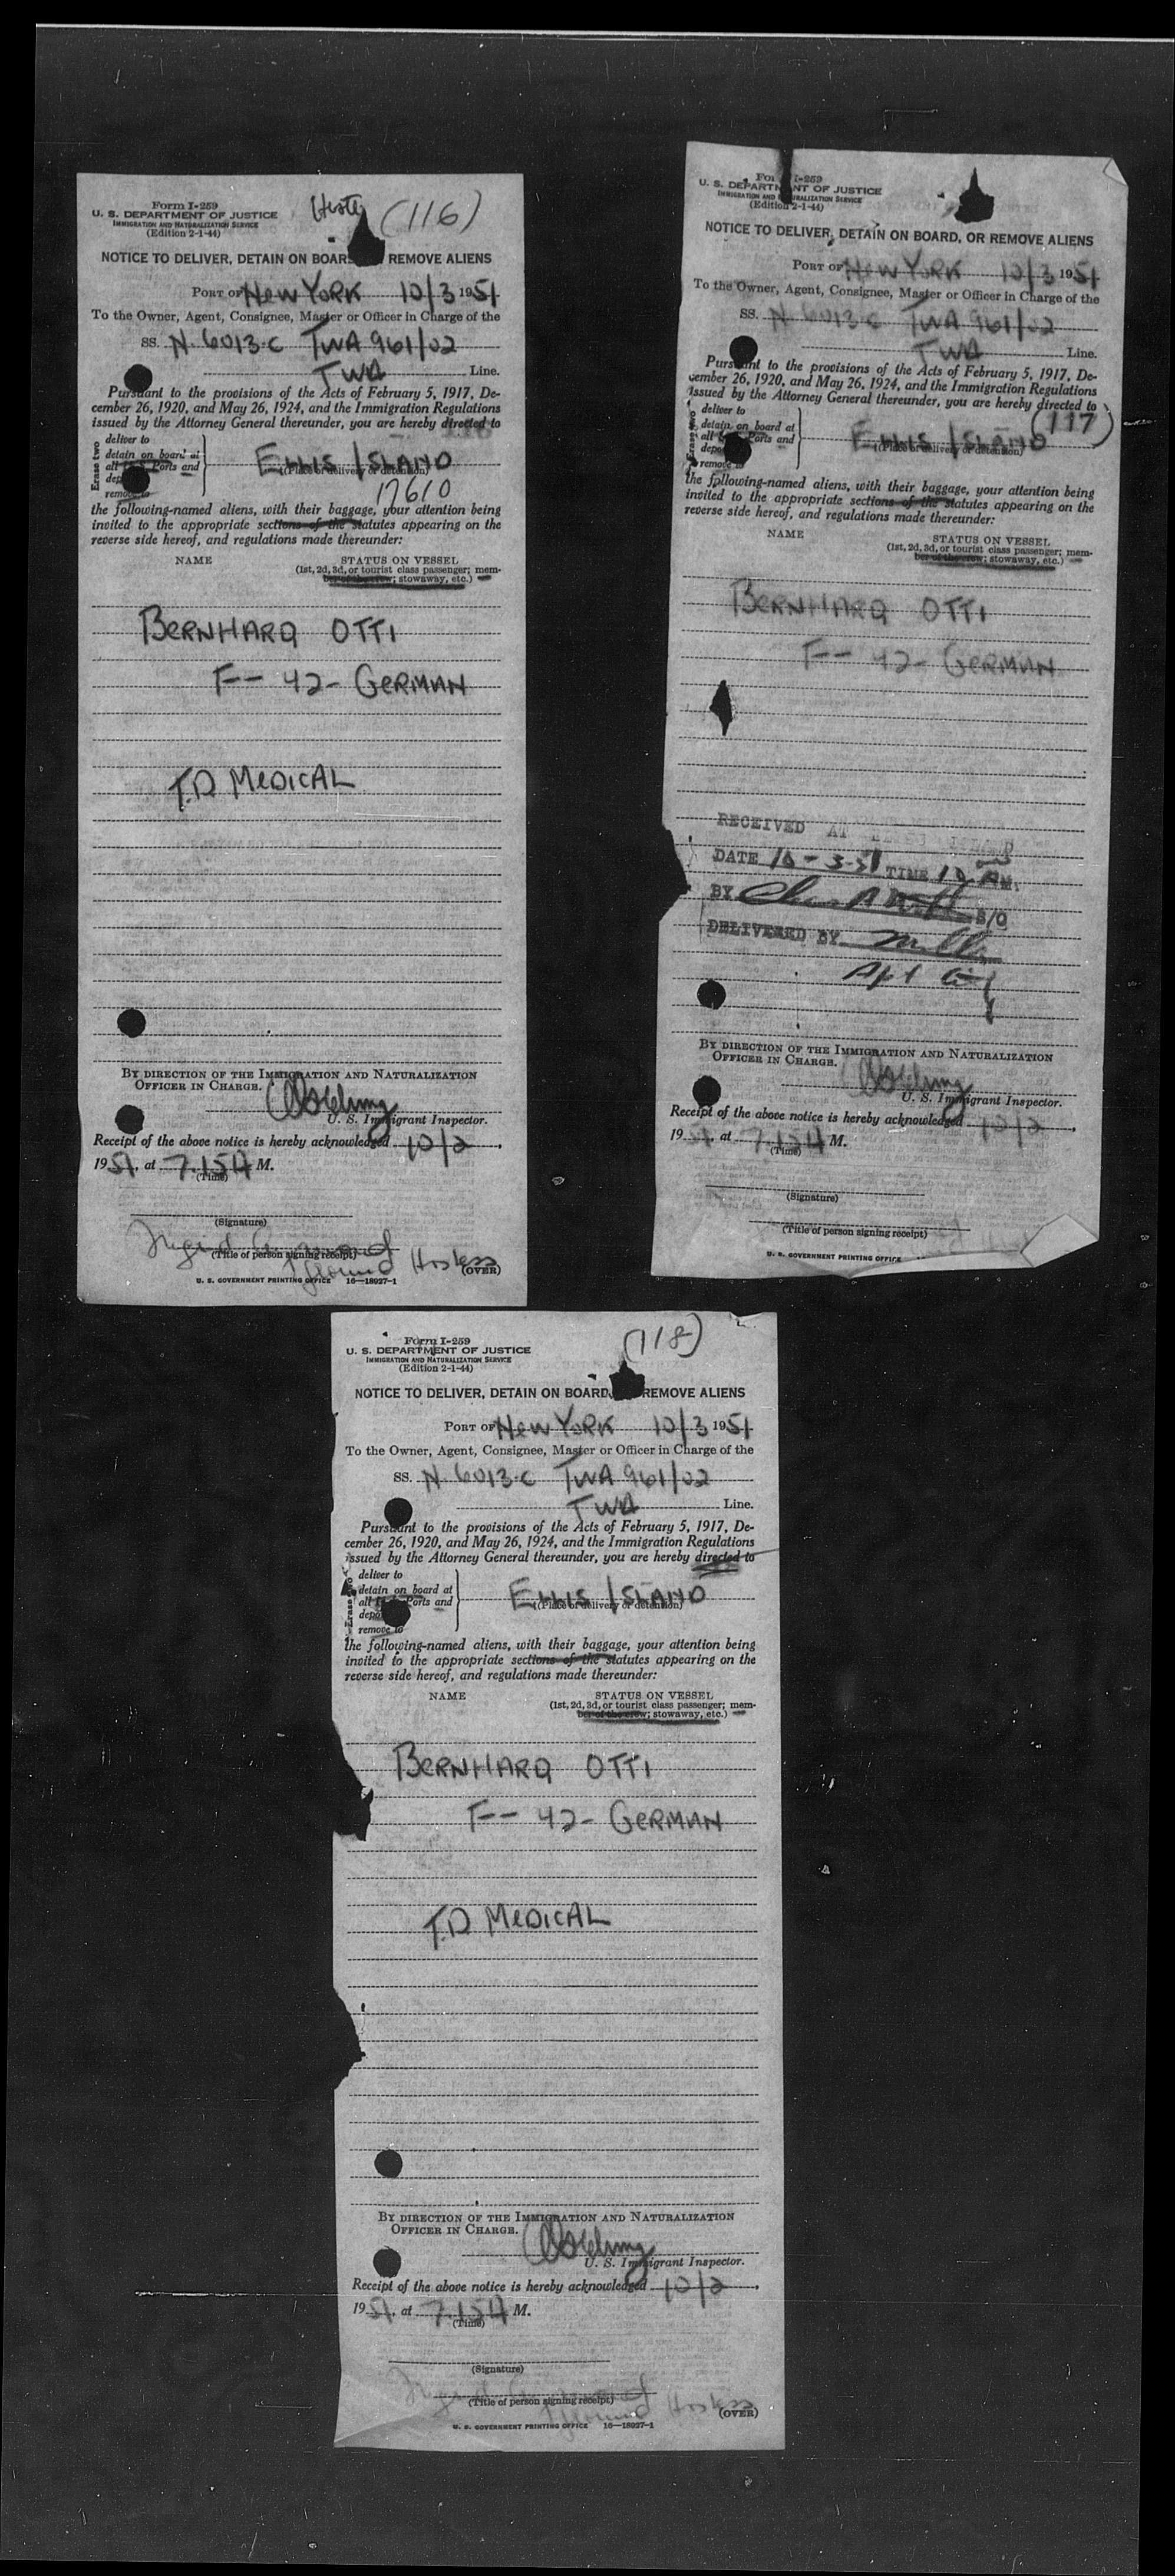 Form I-259
U. S. DEPARTMENT OF JUSTICE
IMMIGRATION AND NATURALIZATION SERVICE
(Edition 2-1-44)
(116)
NOTICE TO DELIVER, DETAIN ON BOARD, REMOVE ALIENS
PORT OF New York 10/3 1951
To the Owner, Agent, Consignee, Master or Officer in Charge of the
SS. N. 6013-C TWA 961/02
TWA Line.
Pursuant to the provisions of the Acts of February 5, 1917, De-
cember 26, 1920, and May 26, 1924, and the Immigration Regulations
issued by the Attorney General thereunder, you are hereby directed to
Erase two
deliver to
detain on board at
all Ports and
remove to
ELLIS ISLAND
(Place of delivery or detention)
17610
the following-named aliens, with their baggage, your attention being
invited to the appropriate sections of the statutes appearing on the
reverse side hereof, and regulations made thereunder:
NAME STATUS ON VESSEL
(1st, 2d, 3d, or tourist class passenger; mem-
ber of the crew; stowaway, etc.)
BERNHARD OTTI
F-- 42- GERMAN
T.D MEDICAL
BY DIRECTION OF THE IMMIGRATION AND NATURALIZATION
OFFICER IN CHARGE.
U. S. Immigrant Inspector.
Receipt of the above notice is hereby acknowledged 10/2,
1951, at 7.15A M.
(Time)
(Signature)
Ingrid
(Title of person signing receipt)
Ground Hostess
(OVER)
U. S. GOVERNMENT PRINTING OFFICE 16—18927-1
Form I-259
U. S. DEPARTMENT OF JUSTICE
IMMIGRATION AND NATURALIZATION SERVICE
(Edition 2-1-44)
NOTICE TO DELIVER, DETAIN ON BOARD, OR REMOVE ALIENS
PORT OF New York 10/3 1951
To the Owner, Agent, Consignee, Master or Officer in Charge of the
SS. N 6013-C TWA 961/02
TWA Line.
Pursuant to the provisions of the Acts of February 5, 1917, De-
cember 26, 1920, and May 26, 1924, and the Immigration Regulations
issued by the Attorney General thereunder, you are hereby directed to
(117)
deliver to
detain on board at
all Ports and
remove to
ELLIS ISLAND
(Place of delivery or detention)
the following-named aliens, with their baggage, your attention being
invited to the appropriate sections of the statutes appearing on the
reverse side hereof, and regulations made thereunder:
NAME STATUS ON VESSEL
(1st, 2d, 3d, or tourist class passenger; mem-
ber of the crew; stowaway, etc.)
BERNHARD OTTI
F-- 42- GERMAN
RECEIVED AT ELLIS ISLAND
DATE 10-3-51 TIME M.
BY S/O
DELIVERED BY
BY DIRECTION OF THE IMMIGRATION AND NATURALIZATION
OFFICER IN CHARGE.
U. S. Immigrant Inspector.
Receipt of the above notice is hereby acknowledged 10/2,
1951, at 7.15A M.
(Time)
(Signature)
(Title of person signing receipt)
U. S. GOVERNMENT PRINTING OFFICE
Form I-259
U. S. DEPARTMENT OF JUSTICE
IMMIGRATION AND NATURALIZATION SERVICE
(Edition 2-1-44)
(118)
NOTICE TO DELIVER, DETAIN ON BOARD, REMOVE ALIENS
PORT OF New York 10/3 1951
To the Owner, Agent, Consignee, Master or Officer in Charge of the
SS. N. 6013-C TWA 961/02
TWA Line.
Pursuant to the provisions of the Acts of February 5, 1917, De-
cember 26, 1920, and May 26, 1924, and the Immigration Regulations
issued by the Attorney General thereunder, you are hereby directed to
Erase two
deliver to
detain on board at
all Ports and
remove to
ELLIS ISLAND
(Place of delivery or detention)
the following-named aliens, with their baggage, your attention being
invited to the appropriate sections of the statutes appearing on the
reverse side hereof, and regulations made thereunder:
NAME STATUS ON VESSEL
(1st, 2d, 3d, or tourist class passenger; mem-
ber of the crew; stowaway, etc.)
BERNHARD OTTI
F-- 42- GERMAN
T.D MEDICAL
BY DIRECTION OF THE IMMIGRATION AND NATURALIZATION
OFFICER IN CHARGE.
U. S. Immigrant Inspector.
Receipt of the above notice is hereby acknowledged 10/2,
1951, at 7.15A M.
(Time)
(Signature)
(Title of person signing receipt)
Ground Hostess
(OVER)
U. S. GOVERNMENT PRINTING OFFICE 16—18927-1